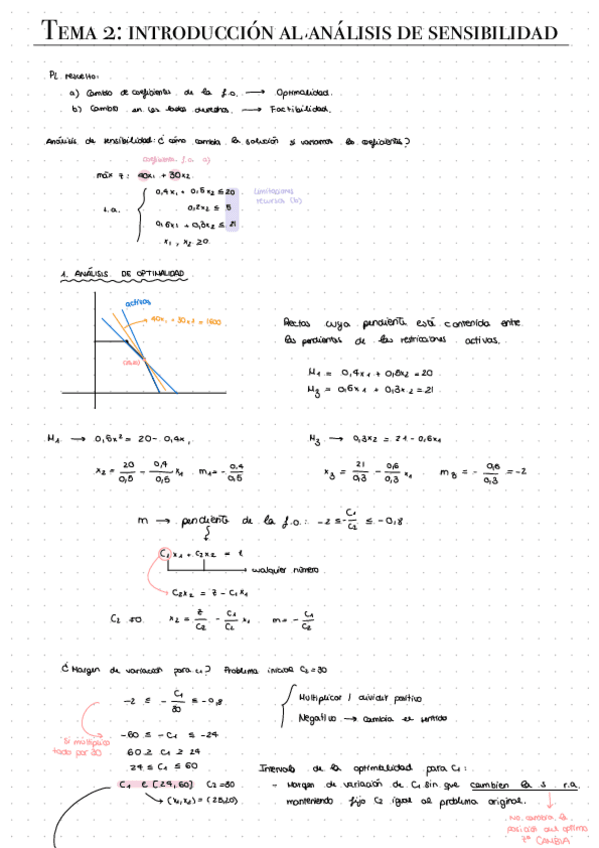 TEMA 2: INTRODUCCIÓN AL ANÁLISIS DE SENSIBILIDAD
PL resuelto:
a) Cambio de coeficientes de la f.o. → Optimalidad.
b) Cambio en los lados derechos. → Factibilidad.
Análisis de sensibilidad: ¿ cómo cambia la solución si variamos los coeficientes?
coeficientes f.o. a)
máx z: 40x₁ + 30x₂
s.a.
0,4x₁ + 0,5x₂ ≤ 20
0,2x₂ ≤ 5
0,6x₁ + 0,3x₂ ≤ 21
x₁, x₂ ≥ 0
Limitaciones
recursos (b)
1. ANÁLISIS DE OPTIMALIDAD
activas
40x₁ + 30x₂ = 1600
(25,20)
Rectas cuya pendiente está contenida entre
las pendientes de las restricciones activas.
M₁ = 0,4x₁ + 0,5x₂ = 20
M₃ = 0,6x₁ + 0,3x₂ = 21
M₁ → 0,5x² = 20 - 0,4x₁
x₂ = 20/0,5 - 0,4/0,5 x₁ m₁ = - 0,4/0,5
M₃ → 0,3x₂ = 21 - 0,6x₁
x₃ = 21/0,3 - 0,6/0,3 x₁ m₃ = - 0,6/0,3 = -2
m → pendiente de la f.o.: -2 ≤ - C₁/C₂ ≤ -0,8
C₁x₁ + C₂x₂ = z
cualquier número
C₂x₂ = z - C₁x₁
C₂ ≠0 x₂ = z/C₂ - C₁/C₂ x₁ m = - C₁/C₂
¿ Margen de variación para c₁? Problema inicial C₂ = 30
-2 ≤ - C₁/30 ≤ -0,8
Multiplicar / dividir positivo
Negativo → cambia el sentido
Si multiplico
todo por 30
-60 ≤ -C₁ ≤ -24
60 ≥ C₁ ≥ 24
24 ≤ C₁ ≤ 60
C₁ ∈ [24,60] C₂ = 30
→ (x₁,x₂) = (25,20)
Intervalo de la optimalidad para C₁:
- Margen de variación de C₁ sin que cambien la s. r.a.
manteniendo fijo C₂ igual al problema original.
No cambia la
posición del óptimo
z* CAMBIA